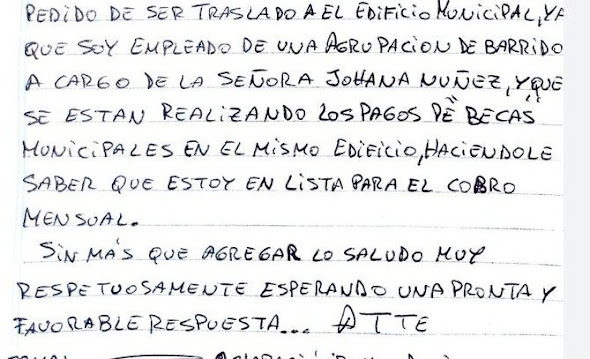 PEDIDO DE SER TRASLADO A EL EDIFICIO MUNICIPAL, YA
QUE SOY EMPLEADO DE UNA AGRUPACION DE BARRIDO
A CARGO DE LA SEÑORA JOHANA NUÑEZ, Y QUE
SE ESTAN REALIZANDO LOS PAGOS DE "BECAS"
MUNICIPALES EN EL MISMO EDIFICIO, HACIENDOLE
SABER QUE ESTOY EN LISTA PARA EL COBRO
MENSUAL.
SIN MÁS QUE AGREGAR LO SALUDO MUY
RESPETUOSAMENTE ESPERANDO UNA PRONTA Y
FAVORABLE RESPUESTA... ATTE